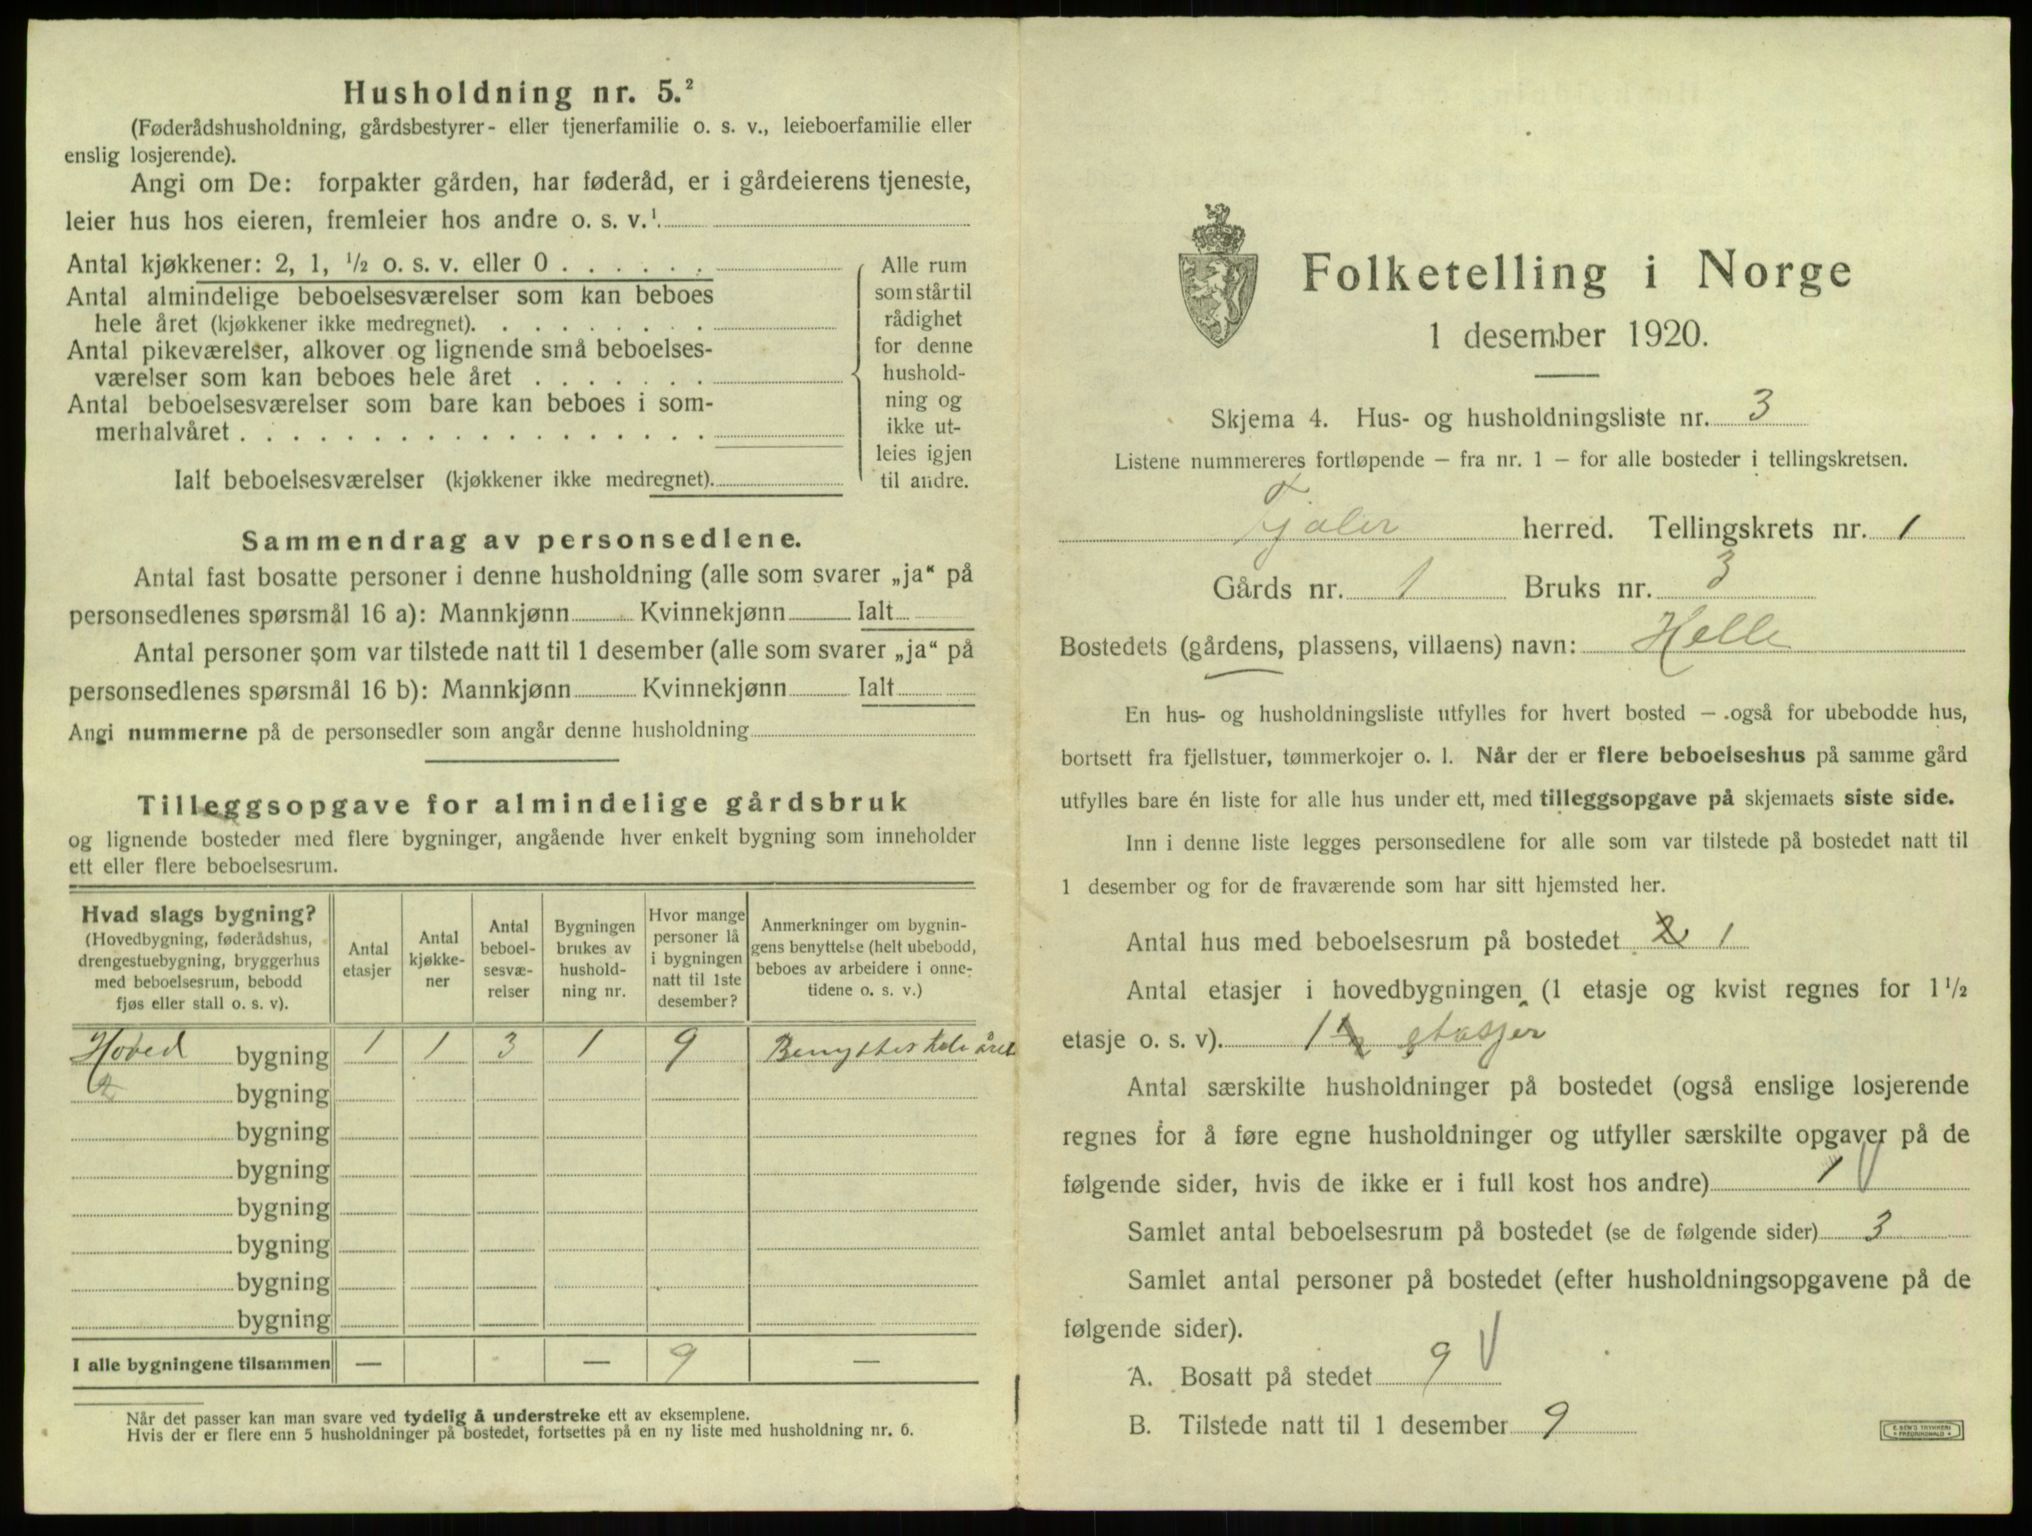 Husholdning nr. 5.²
(Føderådshusholdning, gårdsbestyrer- eller tjenerfamilie o. s. v., leieboerfamilie eller
enslig losjerende).
Angi om De: forpakter gården, har føderåd, er i gårdeierens tjeneste,
leier hus hos eieren, fremleier hos andre o. s. v.¹
Antal kjøkkener: 2, 1, ½ o. s. v. eller 0
Antal almindelige beboelsesværelser som kan beboes
hele året (kjøkkener ikke medregnet).
Antal pikeværelser, alkover og lignende små beboelses-
værelser som kan beboes hele året
Antal beboelsesværelser som bare kan beboes i som-
merhalvåret
Ialt beboelsesværelser (kjøkkener ikke medregnet).
Alle rum
som står til
rådighet
for denne
hushold-
ning og
ikke ut-
leies igjen
til andre.
Sammendrag av personsedlene.
Antal fast bosatte personer i denne husholdning (alle som svarer „ja“ på
personsedlenes spørsmål 16 a): Mannkjønn Kvinnekjønn Ialt
Antal personer som var tilstede natt til 1 desember (alle som svarer „ja“ på
personsedlenes spørsmål 16 b): Mannkjønn Kvinnekjønn Ialt
Angi nummerne på de personsedler som angår denne husholdning
Tilleggsopgave for almindelige gårdsbruk
og lignende bosteder med flere bygninger, angående hver enkelt bygning som inneholder
ett eller flere beboelsesrum.
Hvad slags bygning?
(Hovedbygning, føderådshus,
drengestuebygning, bryggerhus
med beboelsesrum, bebodd
fjøs eller stall o. s. v).
Antal
etasjer
Antal
kjøkke-
ner
Antal
beboel-
sesvæ-
relser
Bygningen
brukes av
hushold-
ning nr.
Hvor mange
personer lå
i bygningen
natt til 1ste
desember?
Anmerkninger om bygnin-
gens benyttelse (helt ubebodd,
beboes av arbeidere i onne-
tidene o. s. v.)
Hoved bygning 1 1 3 1 9 Benyttes hele året
bygning
bygning
bygning
bygning
bygning
bygning
bygning
I alle bygningene tilsammen — — 9 —
Når det passer kan man svare ved tydelig å understreke ett av eksemplene.
Hvis der er flere enn 5 husholdninger på bostedet, fortsettes på en ny liste med husholdning nr. 6.
Folketelling i Norge
1 desember 1920.
Skjema 4. Hus- og husholdningsliste nr. 3
Listene nummereres fortløpende — fra nr. 1 — for alle bosteder i tellingskretsen.
Fjaler herred. Tellingskrets nr. 1
Gårds nr. 1 Bruks nr. 3
Bostedets (gårdens, plassens, villaens) navn: Helle
En hus- og husholdningsliste utfylles for hvert bosted — også for ubebodde hus,
bortsett fra fjellstuer, tømmerkojer o. l. Når der er flere beboelseshus på samme gård
utfylles bare én liste for alle hus under ett, med tilleggsopgave på skjemaets siste side.
Inn i denne liste legges personsedlene for alle som var tilstede på bostedet natt til
1 desember og for de fraværende som har sitt hjemsted her.
Antal hus med beboelsesrum på bostedet 2 1
Antal etasjer i hovedbygningen (1 etasje og kvist regnes for 1½
etasje o. s. v). 1½ etasjer
Antal særskilte husholdninger på bostedet (også enslige losjerende
regnes for å føre egne husholdninger og utfyller særskilte opgaver på de
følgende sider, hvis de ikke er i full kost hos andre) 1
Samlet antal beboelsesrum på bostedet (se de følgende sider) 3
Samlet antal personer på bostedet (efter husholdningsopgavene på de
følgende sider).
A. Bosatt på stedet 9
B. Tilstede natt til 1 desember 9